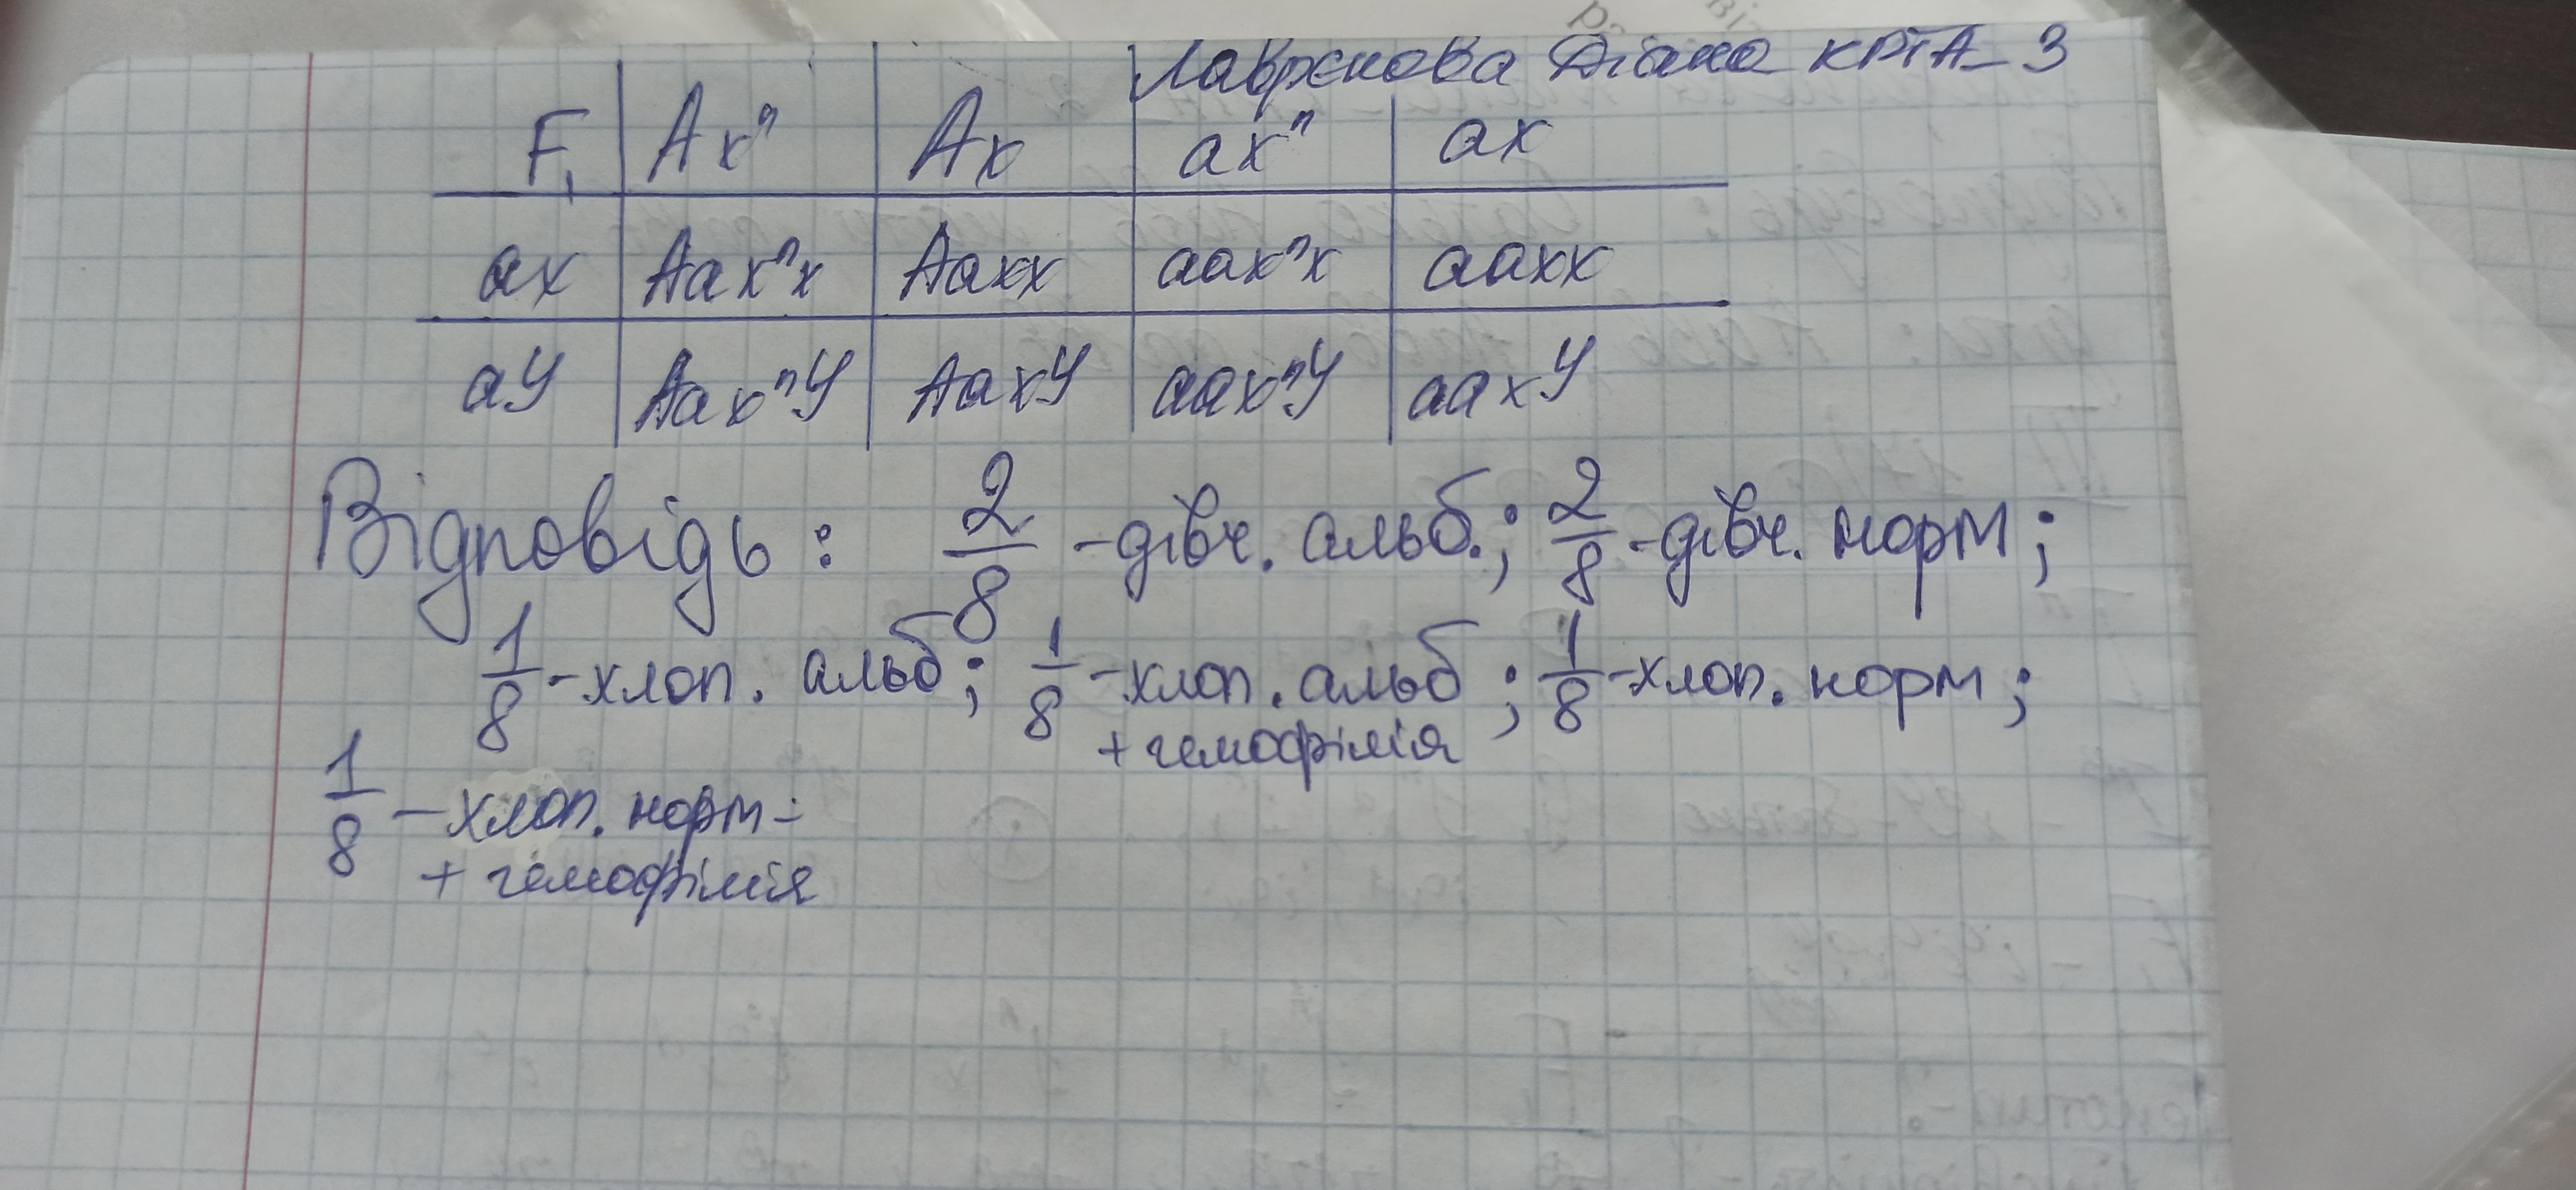 Лаврєнова Діана КРТА-3
F₁ Axⁿ Ax axⁿ ax
ax Aaxⁿx Aaxx aaxⁿx aaxx
aY AaxⁿY AaxY aaxⁿY aaxY
Відповідь: 2/8 - дівч. альб.; 2/8 - дівч. норм;
1/8 - хлоп. альб; 1/8 - хлоп. альб + гемофілія; 1/8 - хлоп. норм;
1/8 - хлоп. норм -
+ гемофілія